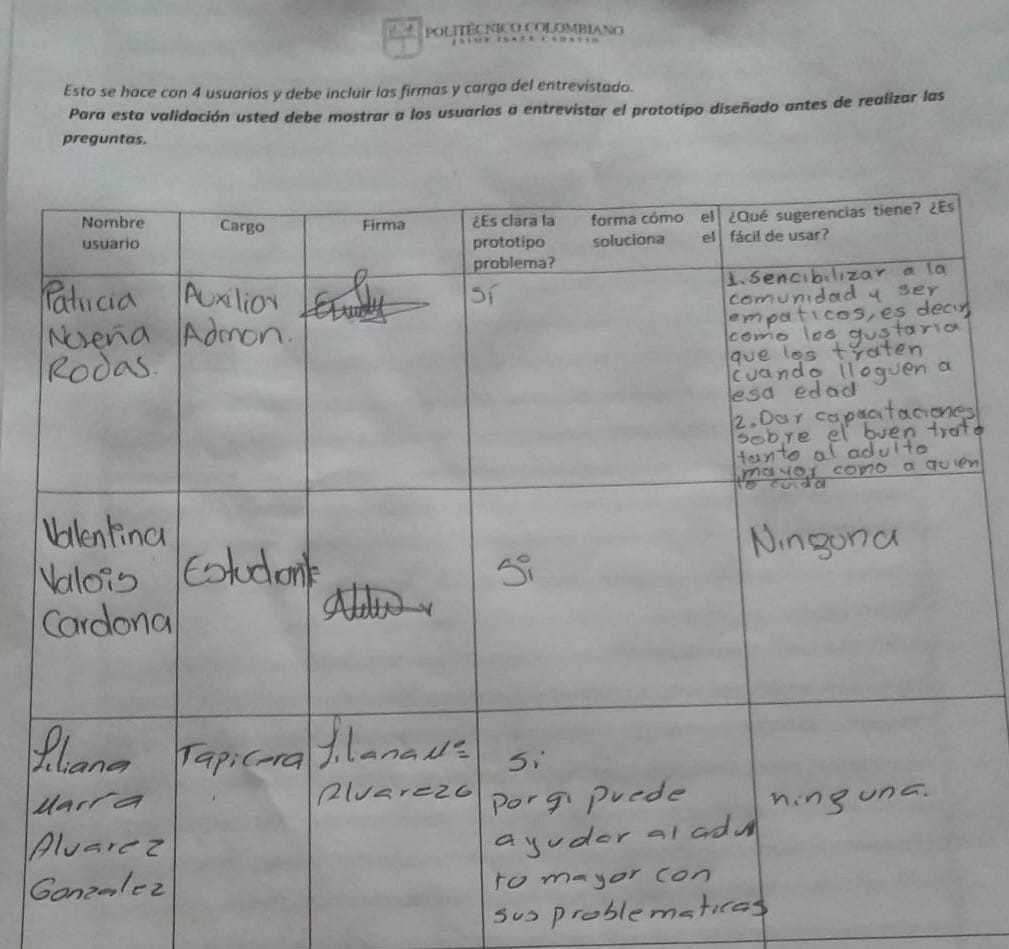 POLITÉCNICO COLOMBIANO
JAIME ISAZA CADAVID
Esto se hace con 4 usuarios y debe incluir las firmas y cargo del entrevistado.
Para esta validación usted debe mostrar a los usuarios a entrevistar el prototipo diseñado antes de realizar las
preguntas.
Nombre
usuario
Cargo
Firma
¿Es clara la forma cómo el
prototipo soluciona el
problema?
¿Qué sugerencias tiene? ¿Es
fácil de usar?
Patricia
Noreña
Rodas.
Auxiliar
Admon.
Sí
1. Sencibilizar a la
comunidad y ser
empaticos, es decir,
como les gustaria
que los traten
cuando lleguen a
esa edad
2. Dar capacitaciones
sobre el buen trato
tanto al adulto
mayor como a quien
lo cuida
Valentina
Valois
Cardona
Estudiante
Si
Ninguna
Liliana
Marra
Alvarez
Gonzalez
Tapicera
Lilana Mª
Alvarez G
Si
porqi puede
ayudar al adul
to mayor con
sus problematicas
ninguna.